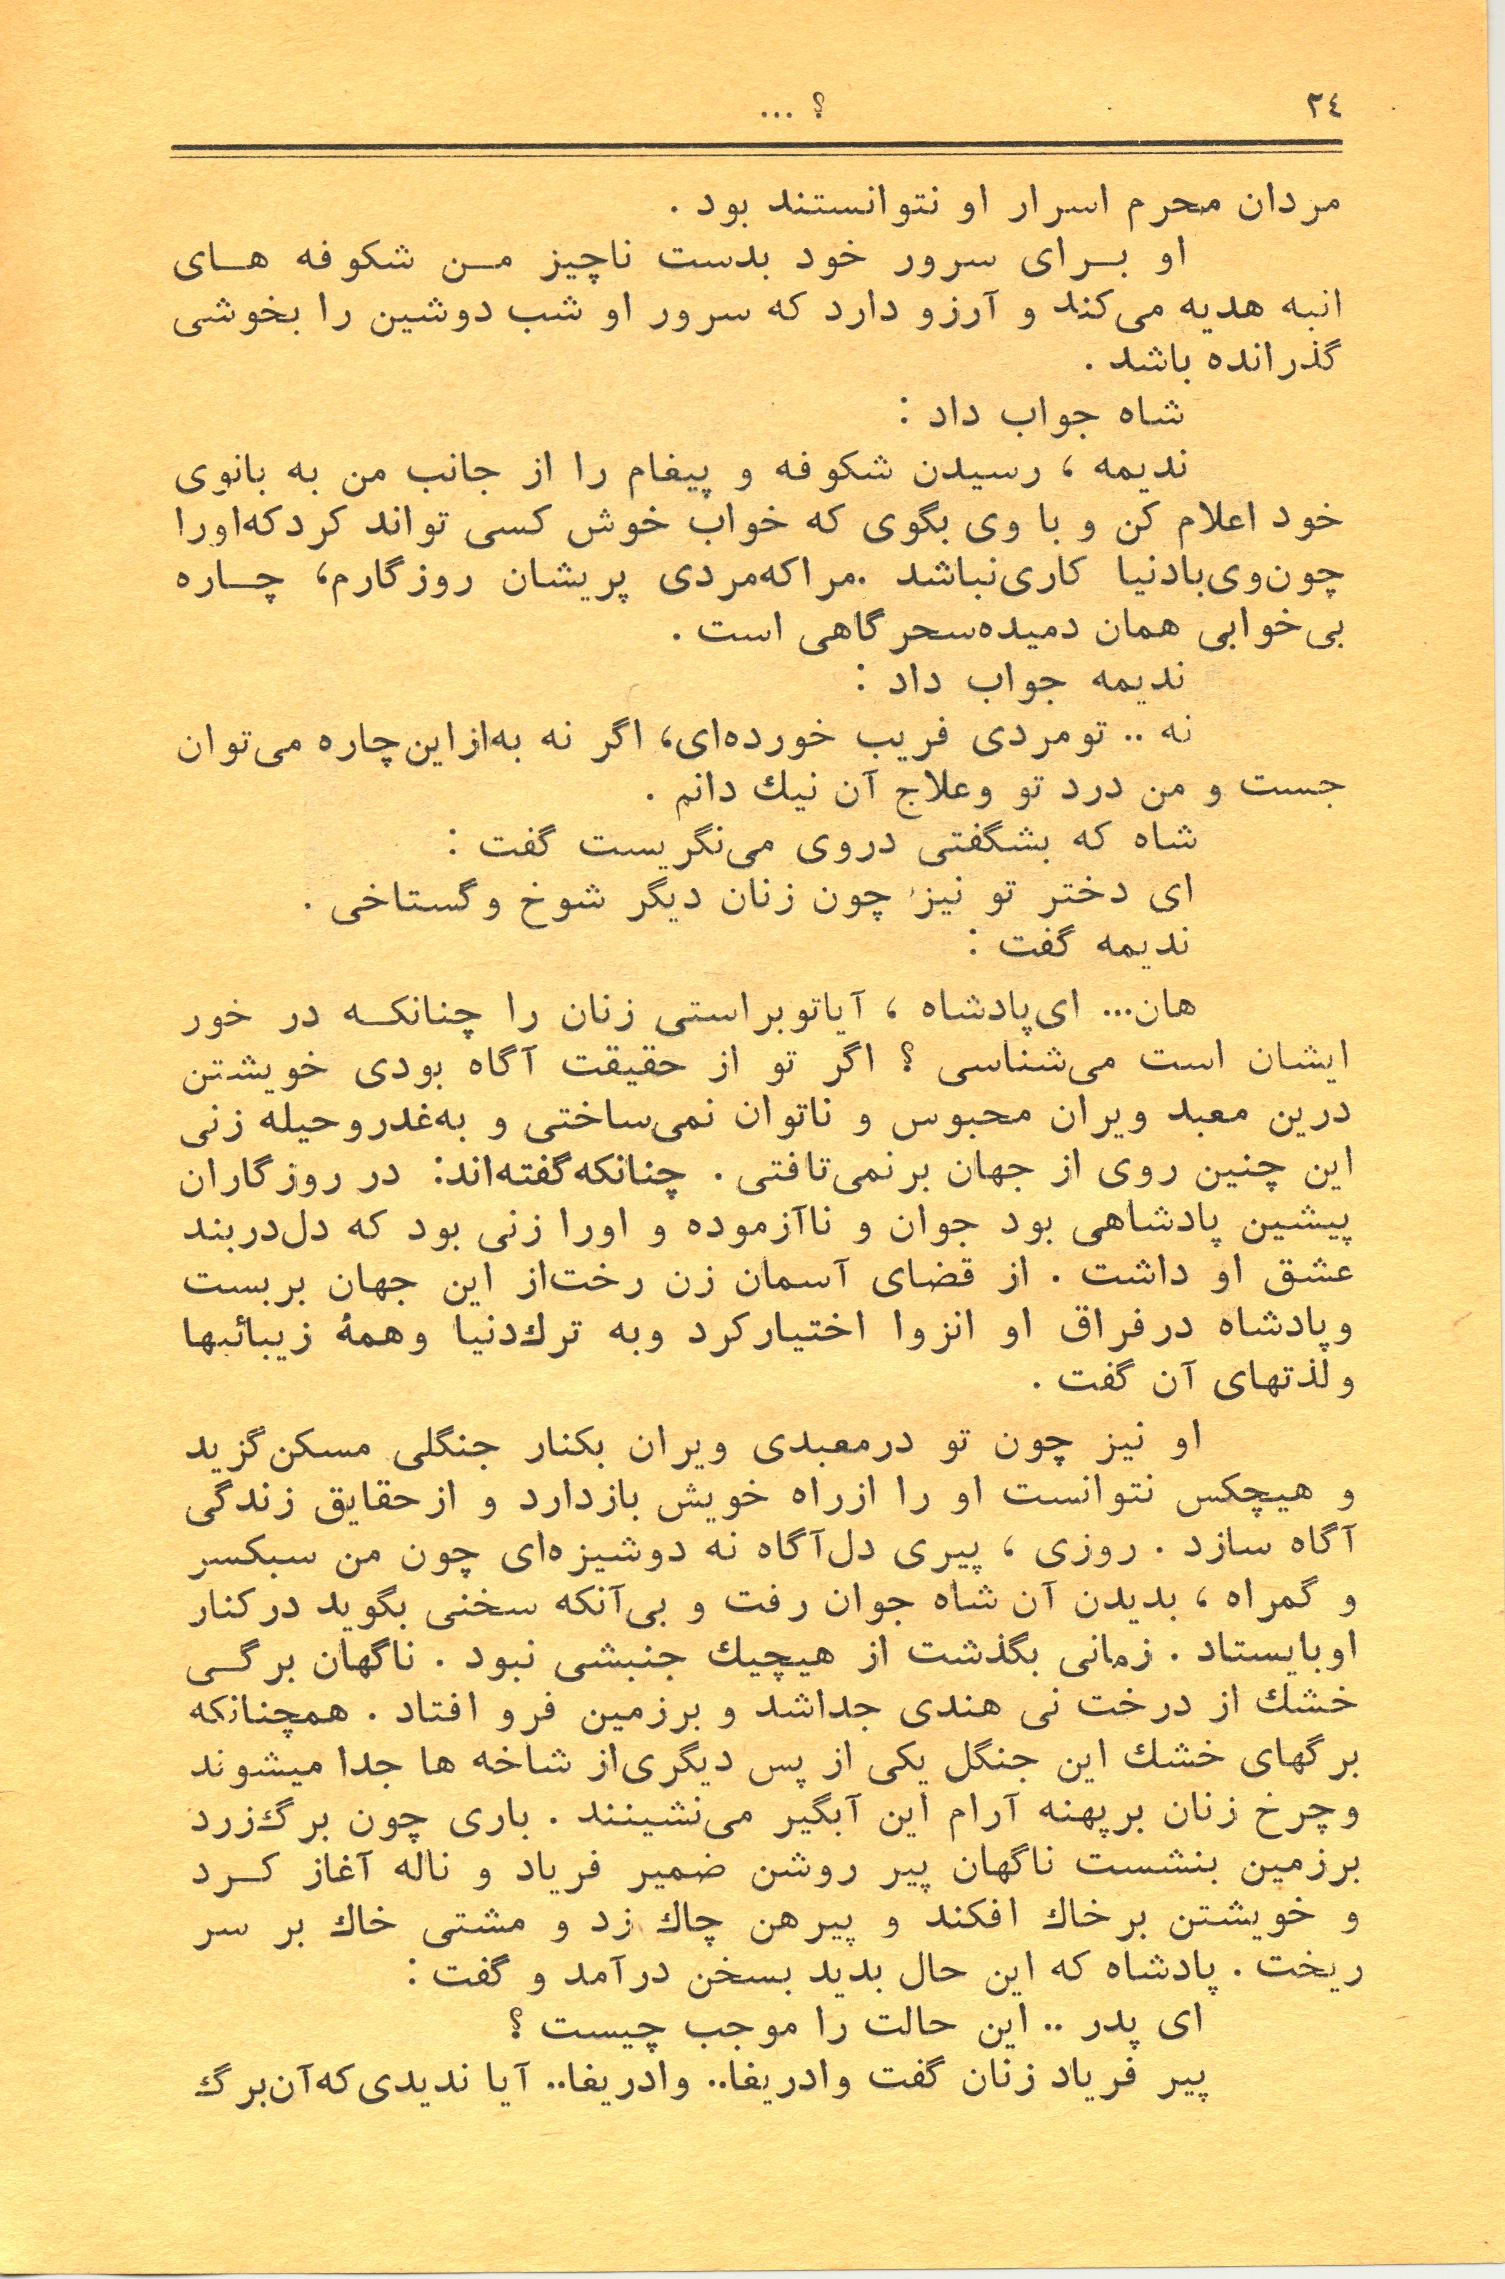 ٢٤
؟ ...
مردان محرم اسرار او نتوانستند بود .
او بــرای سرور خود بدست ناچیز مــن شکوفه هــای
انبه هدیه می‌کند و آرزو دارد که سرور او شب دوشین را بخوشی
گذرانده باشد .
شاه جواب داد :
ندیمه ، رسیدن شکوفه و پیغام را از جانب من به بانوی
خود اعلام کن و با وی بگوی که خواب خوش کسی تواند کردکه‌اورا
چون‌وی‌بادنیا کاری‌نباشد .مراکه‌مردی پریشان روزگارم، چــاره
بی‌خوابی همان دمیده‌سحرگاهی است .
ندیمه جواب داد :
نه .. تومردی فریب خورده‌ای، اگر نه به‌ازاین‌چاره می‌توان
جست و من درد تو وعلاج آن نیك دانم .
شاه که بشگفتی دروی می‌نگریست گفت :
ای دختر تو نیز چون زنان دیگر شوخ وگستاخی .
ندیمه گفت :
هان... ای‌پادشاه ، آیاتوبراستی زنان را چنانکــه در خور
ایشان است می‌شناسی ؟ اگر تو از حقیقت آگاه بودی خویشتن
درین معبد ویران محبوس و ناتوان نمی‌ساختی و به‌غدروحیله زنی
این چنین روی از جهان برنمی‌تافتی . چنانکه‌گفته‌اند: در روزگاران
پیشین پادشاهی بود جوان و ناآزموده و اورا زنی بود که دل‌دربند
عشق او داشت . از قضای آسمان زن رخت‌از این جهان بربست
وپادشاه درفراق او انزوا اختیارکرد وبه ترك‌دنیا وهمهٔ زیبائیها
ولذتهای آن گفت .
او نیز چون تو درمعبدی ویران بکنار جنگلی مسکن‌گزید
و هیچکس نتوانست او را ازراه خویش بازدارد و ازحقایق زندگی
آگاه سازد . روزی ، پیری دل‌آگاه نه دوشیزه‌ای چون من سبکسر
و گمراه ، بدیدن آن شاه جوان رفت و بی‌آنکه سخنی بگوید درکنار
اوبایستاد . زمانی بگذشت از هیچیك جنبشی نبود . ناگهان برگــی
خشك از درخت نی هندی جداشد و برزمین فرو افتاد . همچنانکه
برگهای خشك این جنگل یکی از پس دیگری‌از شاخه ها جدا میشوند
وچرخ زنان برپهنه آرام این آبگیر می‌نشینند . باری چون برگ‌زرد
برزمین بنشست ناگهان پیر روشن ضمیر فریاد و ناله آغاز کــرد
و خویشتن برخاك افکند و پیرهن چاك زد و مشتی خاك بر سر
ریخت . پادشاه که این حال بدید بسخن درآمد و گفت :
ای پدر .. این حالت را موجب چیست ؟
پیر فریاد زنان گفت وادریغا.. وادریغا.. آیا ندیدی‌که‌آن‌برگ